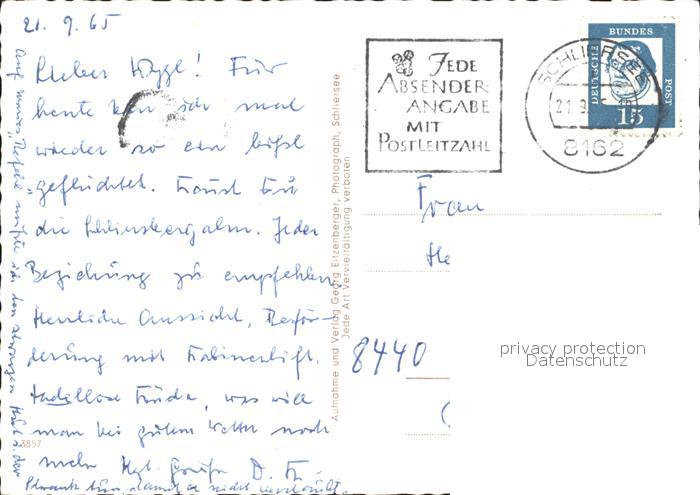 21. 9. 65
Lieber Wyggl! Für
heute bin ich mal
wieder so ein bißl
geflüchtet.
die Schliersbergalm. Jeder
Beziehung zu empfehlen.
Herrliche Aussicht, Beför-
derung mit Kabinenlift.
tadellose Küche, was will
man bei gutem Wetter noch
mehr Hzl. Grüße D.
Schrank tun damit er nicht verstaubt.
3857
Aufnahme und Verlag Georg Eitzenberger, Photograph, Schliersee
Jede Art Vervielfältigung verboten
JEDE
ABSENDER-
ANGABE
MIT
POSTLEITZAHL
SCHLIERSEE
21.9.
8162
DEUTSCHE
BUNDES
POST
15
Frau
He
8440
privacy protection
Datenschutz